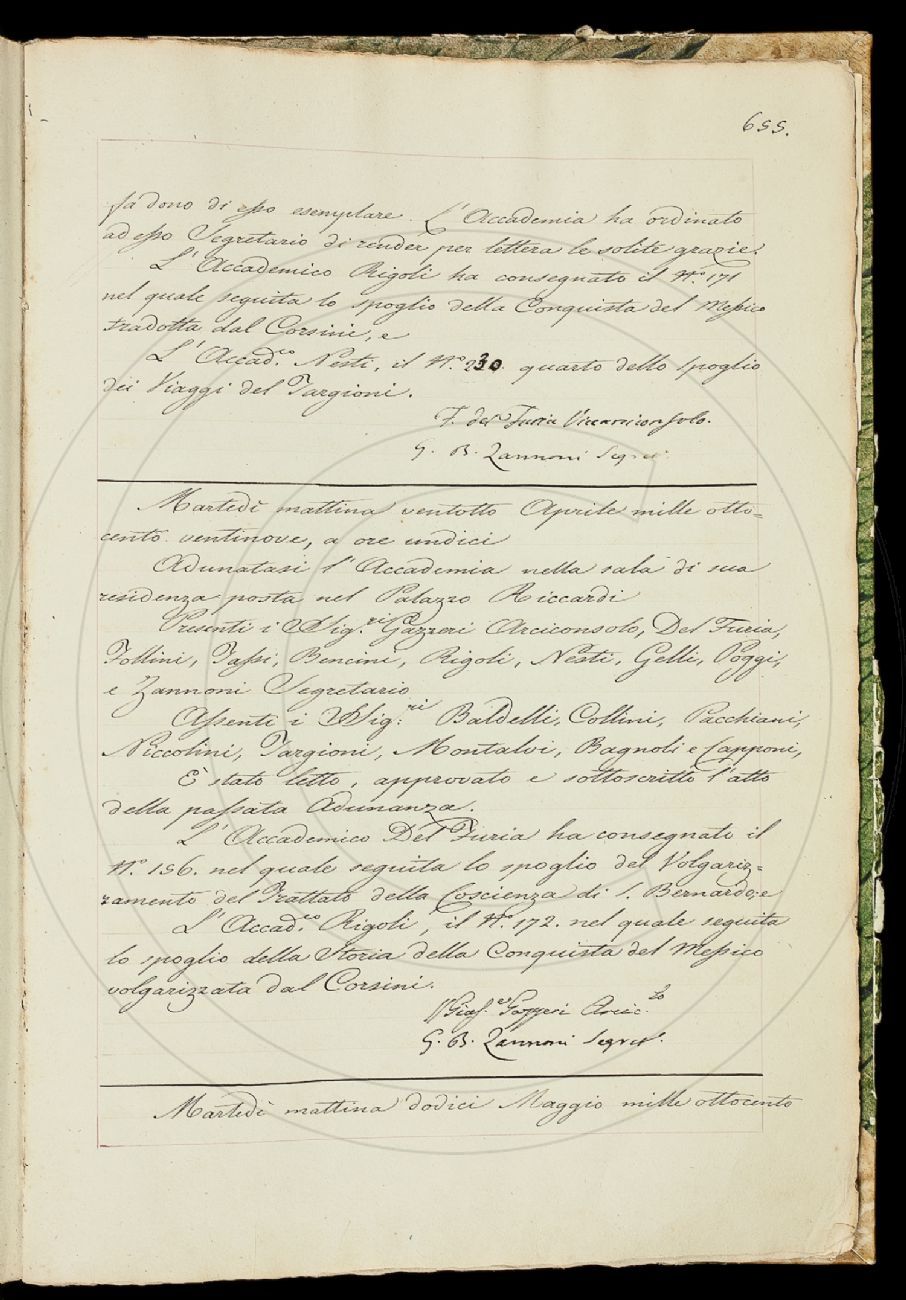 655.
fa dono di esso esemplare. L'Accademia ha ordinato
ad esso Segretario di render per lettera le solite grazie.
L'Accademico Rigoli ha consegnato il N.º 171
nel quale seguita lo spoglio della Conquista del Messico
tradotta dal Corsini, e
L'Accad.co Nesti, il N.º 230 quarto dello spoglio
dei Viaggi del Targioni.
F. del Furia Vicearciconsolo.
G. B. Zannoni Segret.
Martedì mattina ventotto Aprile mille otto=
cento ventinove, a ore undici
Adunatasi l'Accademia nella sala di sua
residenza posta nel Palazzo Riccardi
Presenti i Sig.ri Gazzeri Arciconsolo, Del Furia,
Follini, Tassi, Bencini, Rigoli, Nesti, Gelli, Poggi,
e Zannoni Segretario
Assenti i Sig.ri Baldelli, Collini, Pacchiani,
Niccolini, Targioni, Montalvi, Bagnoli e Capponi,
È stato letto, approvato e sottoscritto l'atto
della passata Adunanza.
L'Accademico Del Furia ha consegnato il
N.º 156. nel quale seguita lo spoglio del Volgariz=
zamento del Trattato della Coscienza di S. Bernardo, e
L'Accad.co Rigoli, il N.º 172. nel quale seguita
lo spoglio della Storia della Conquista del Messico
volgarizzata dal Corsini.
Gazzeri Arcic.lo
G. B. Zannoni Segret.
Martedì mattina dodici Maggio mille ottocento